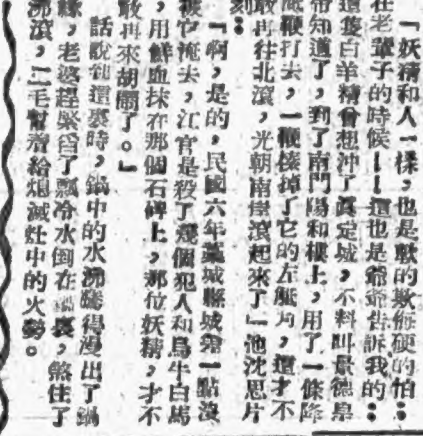 「妖精和人一樣,也是軟的欺侮硬的怕:
在老輩子的時候——這也是爺爺告訴我的:
這隻白羊精曾想沖了眞定城,不料叫景德皇
帝知道了,到了南門陽和樓上,用了一條降
鞭打去,一鞭掉了它的左角,這才不
敢再往北滾,光朝南崖滾起來了」他沈思片
刻:
「啊,是的,民國六年藁城縣城差一點沒
被它淹去,江官是殺了幾個犯人和烏牛白馬
,用鮮血抹在那個石碑上,那位妖精,才不
敢再來胡鬧了。」
話說到這裏時,鍋中的水沸騰得漫出了鍋
緣,老婆趕緊舀了瓢冷水倒在鍋裏,煞住了
沸滾,二毛幫着給熄滅灶中的火勢。